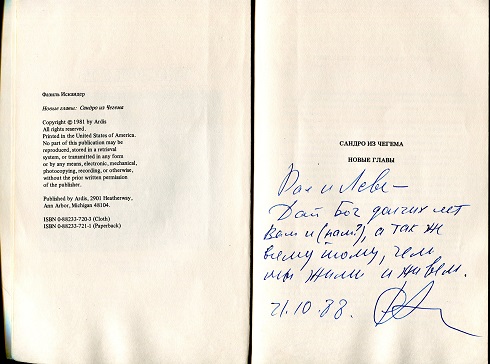 Фазиль Искандер
Новые главы: Сандро из Чегема
Copyright © 1981 by Ardis
All rights reserved.
Printed in the United States of America.
No part of this publication may be
reproduced, stored in a retrieval
system, or transmitted in any form
or by any means, electronic, mechanical,
photocopying, recording, or otherwise,
without the prior written permission
of the publisher.
Published by Ardis, 2901 Heatherway,
Ann Arbor, Michigan 48104.
ISBN 0-88233-720-3 (Cloth)
ISBN 0-88233-721-1 (Paperback)
САНДРО ИЗ ЧЕГЕМА
НОВЫЕ ГЛАВЫ
Рае и Леве –
Дай Бог долгих лет
Вам и (нам?), а так же
всему тому, чем
мы жили и живем.
21.10.88.